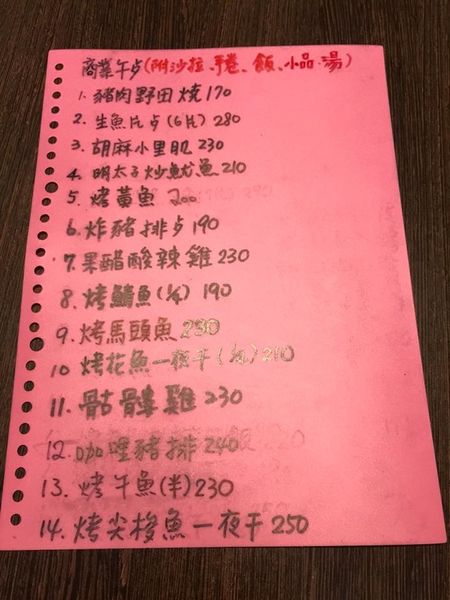 商業午歺(附沙拉、手卷、飯、小品、湯)
1. 豬肉野田燒 170
2. 生魚片歺(6片) 280
3. 胡麻小里肌 230
4. 明太子炒魷魚 210
5. 烤黃魚 200
6. 炸豬排歺 190
7. 果醋酸辣雞 230
8. 烤鯖魚(¼) 190
9. 烤馬頭魚 230
10 烤花魚一夜干(¼) 210
11. 骷髏雞 230
12. 咖哩豬排 240
13. 烤午魚(半) 230
14. 烤尖梭魚一夜干 250